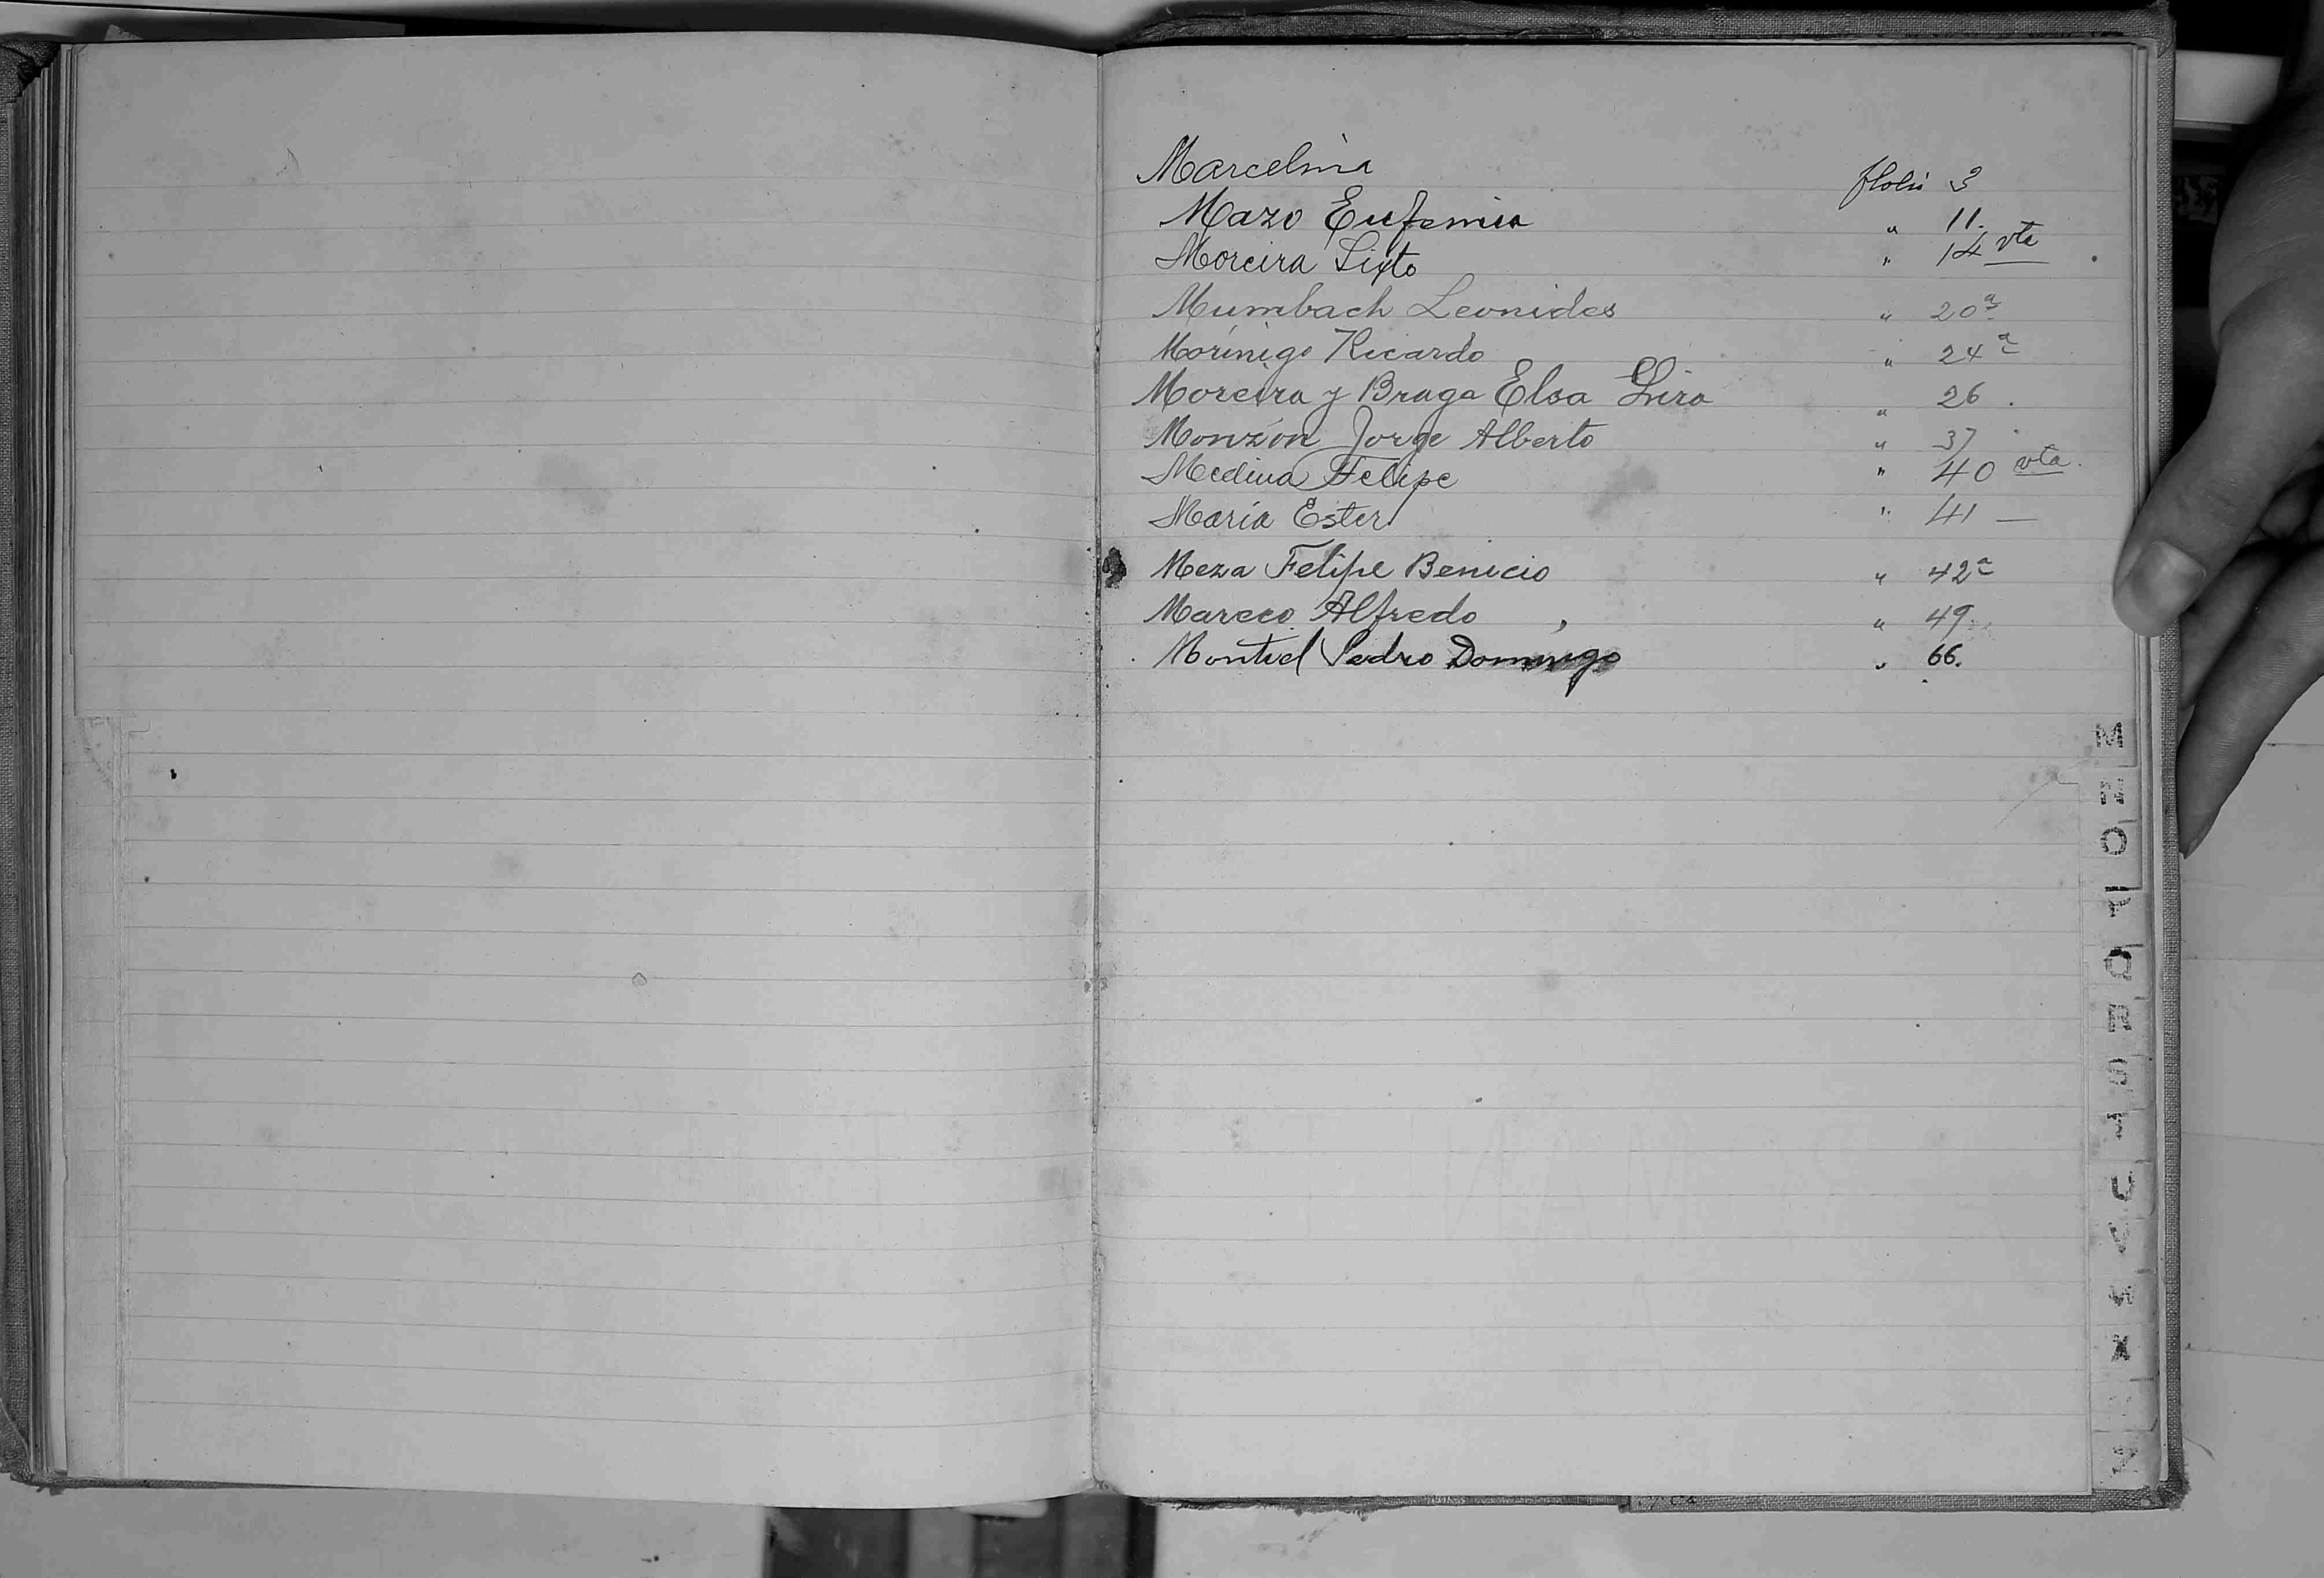 Marcelina folio 3
Mazo Eufemia " 11.
Moreira Sixto " 14 vta
Mumbach Leonides " 20ª
Morínigo Ricardo " 24ª
Moreira y Braga Elsa " 26.
Monzón Jorge Alberto " 37
Medina Felipe " 40 vta.
María Ester " 41 —
Meza Felipe Benicio " 42ª
Mareco Alfredo " 49.
Montiel Pedro Domingo " 66.
M
N
O
P
Q
R
S
T
U
V
W
X
Z